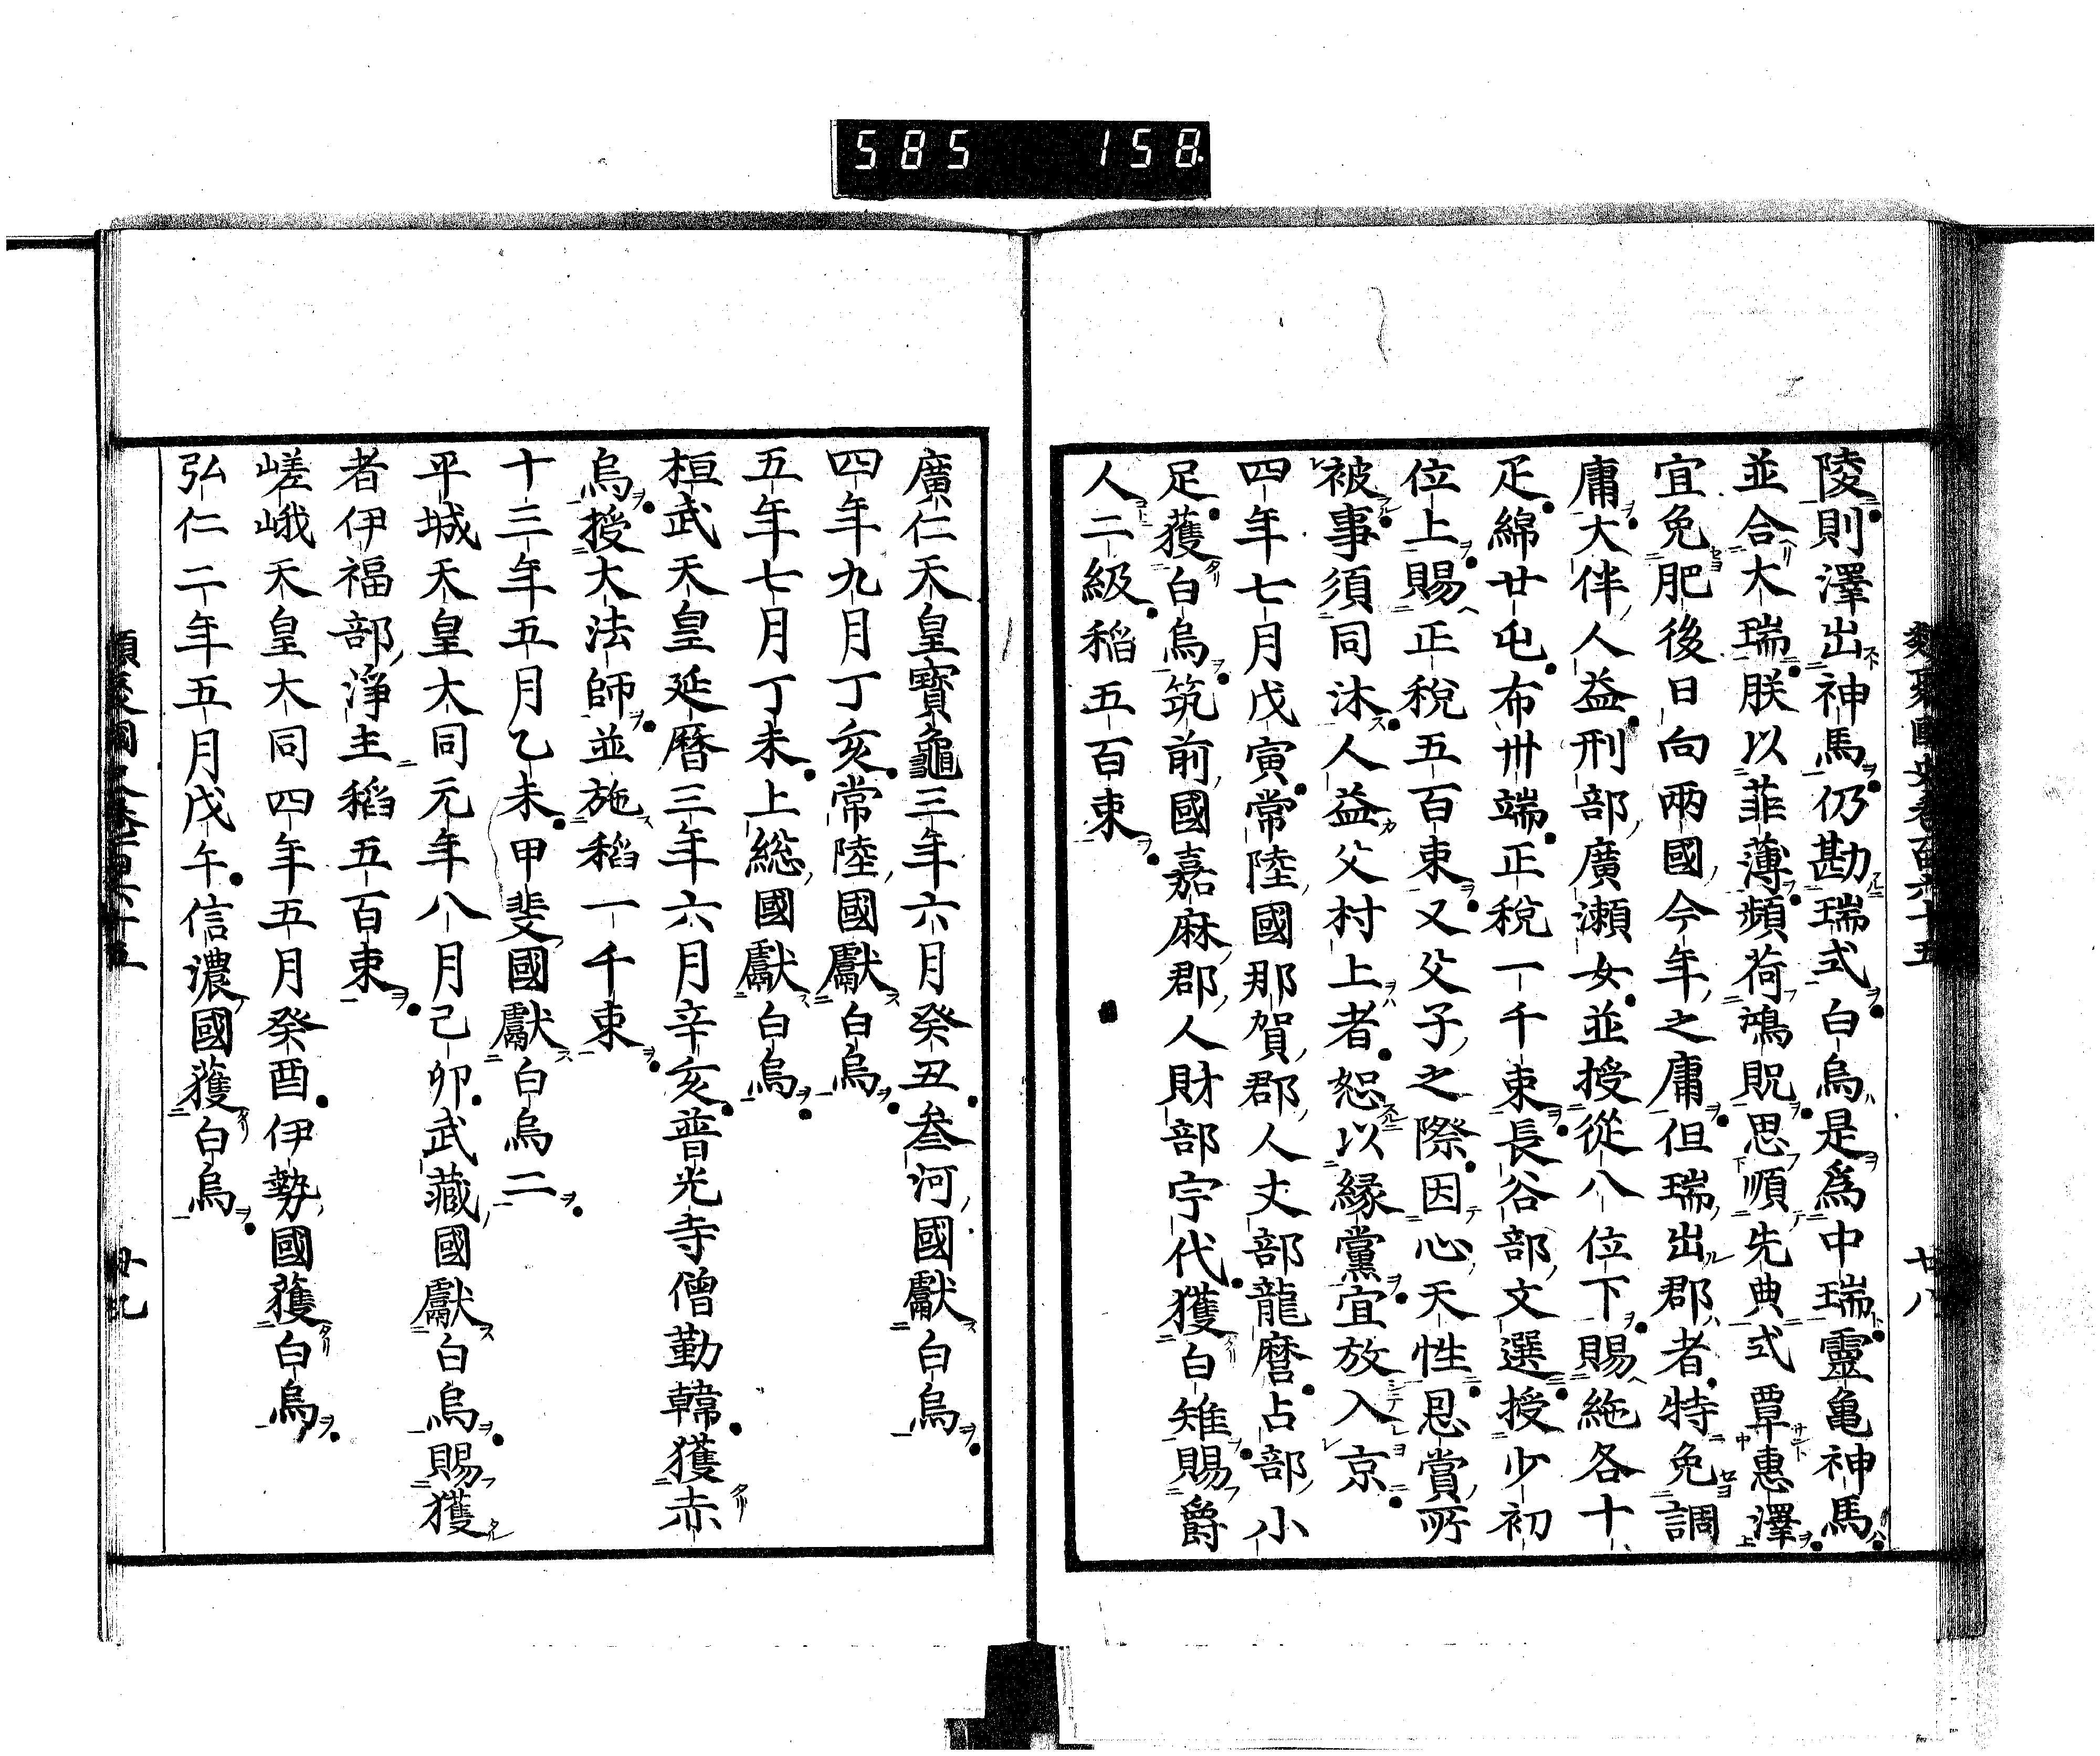 585 158
陵則澤出神馬仍勘瑞式白烏是爲中瑞靈亀神馬
並合大瑞朕以菲薄頻荷鴻貺思順先典式覃惠澤
宜免肥後日向兩國今年之庸但瑞出郡者特免調
庸大伴人益刑部廣瀬女並授從八位下賜絁各十
疋綿廿屯布卅端正税一千束長谷部文選授少初
位上賜正税五百束又父子之際因心天性恩賞所
被事須同沐人益父村上者恕以縁黨宜放入京
四年七月戊寅常陸國那賀郡人丈部龍麿占部小
足獲白烏筑前國嘉麻郡人財部宇代獲白雉賜爵
人二級稻五百束
廿八
廣仁天皇寶龜三年六月癸丑叁河國獻白烏
四年九月丁亥常陸國獻白烏
五年七月丁未上総國獻白烏
桓武天皇延暦三年六月辛亥普光寺僧勤韓獲赤
烏授大法師並施稻一千束
十三年五月乙未甲斐國獻白烏二
平城天皇大同元年八月己卯武藏國獻白烏賜獲
者伊福部淨主稻五百束
嵯峨天皇大同四年五月癸酉伊勢國獲白烏
弘仁二年五月戊午信濃國獲白烏